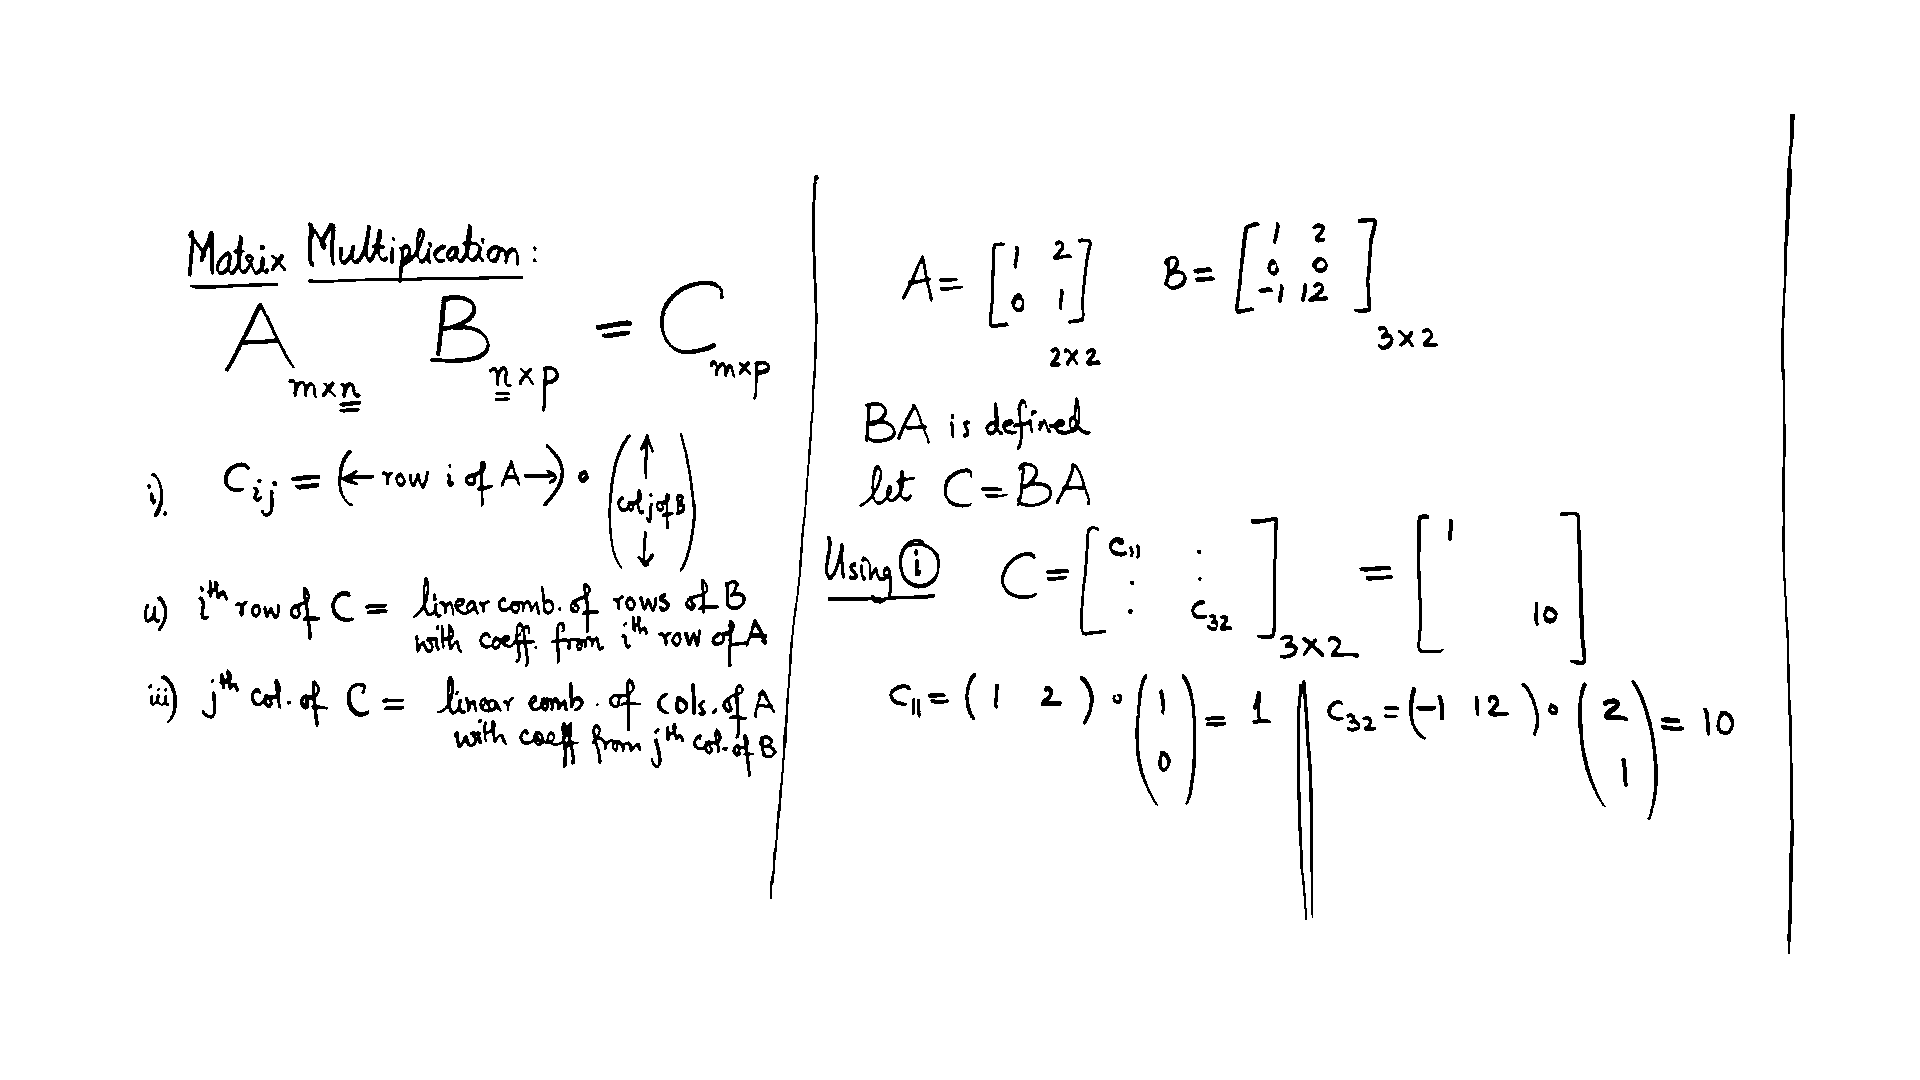 Matrix Multiplication:
A m×n B n×p = C m×p
i). C ij = (← row i of A →) • (↑ col j of B ↓)
ii) i th row of C = linear comb. of rows of B
with coeff. from i th row of A
iii) j th col. of C = linear comb. of cols. of A
with coeff from j th col. of B
A = [1 2
0 1] 2×2
B = [1 2
0 0
-1 12] 3×2
BA is defined
let C = BA
Using (i) C = [C11 .
: :
. C32] 3×2 = [1
10]
C11 = (1 2) • (1
0) = 1
C32 = (-1 12) • (2
1) = 10